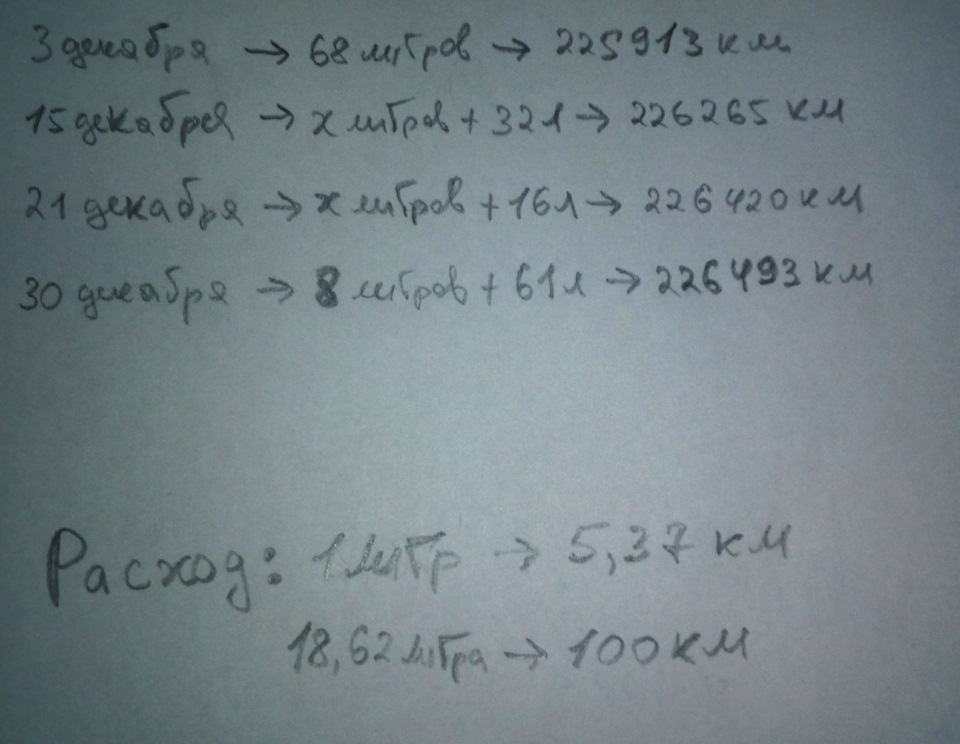 3 декабря → 68 литров → 225913 км
15 декабря → x литров + 32л → 226265 км
21 декабря → x литров + 16л → 226420 км
30 декабря → 8 литров + 61л → 226493 км
Расход: 1 литр → 5,37 км
18,62 литра → 100 км